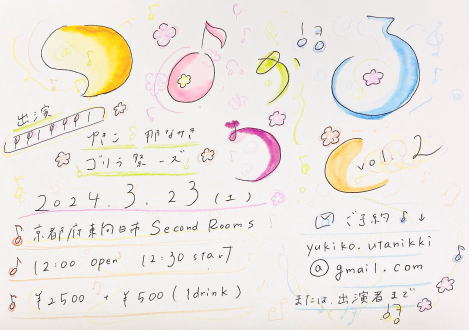 vol. 2
出演
ゴリラ祭ーズ
2024.3.23 (土)
京都府東向日市 Second Rooms
12:00 open 12:30 start
¥2500 + ¥500 (1drink)
ご予約 ↓
yukiko.utanikki
@gmail.com
または、出演者まで